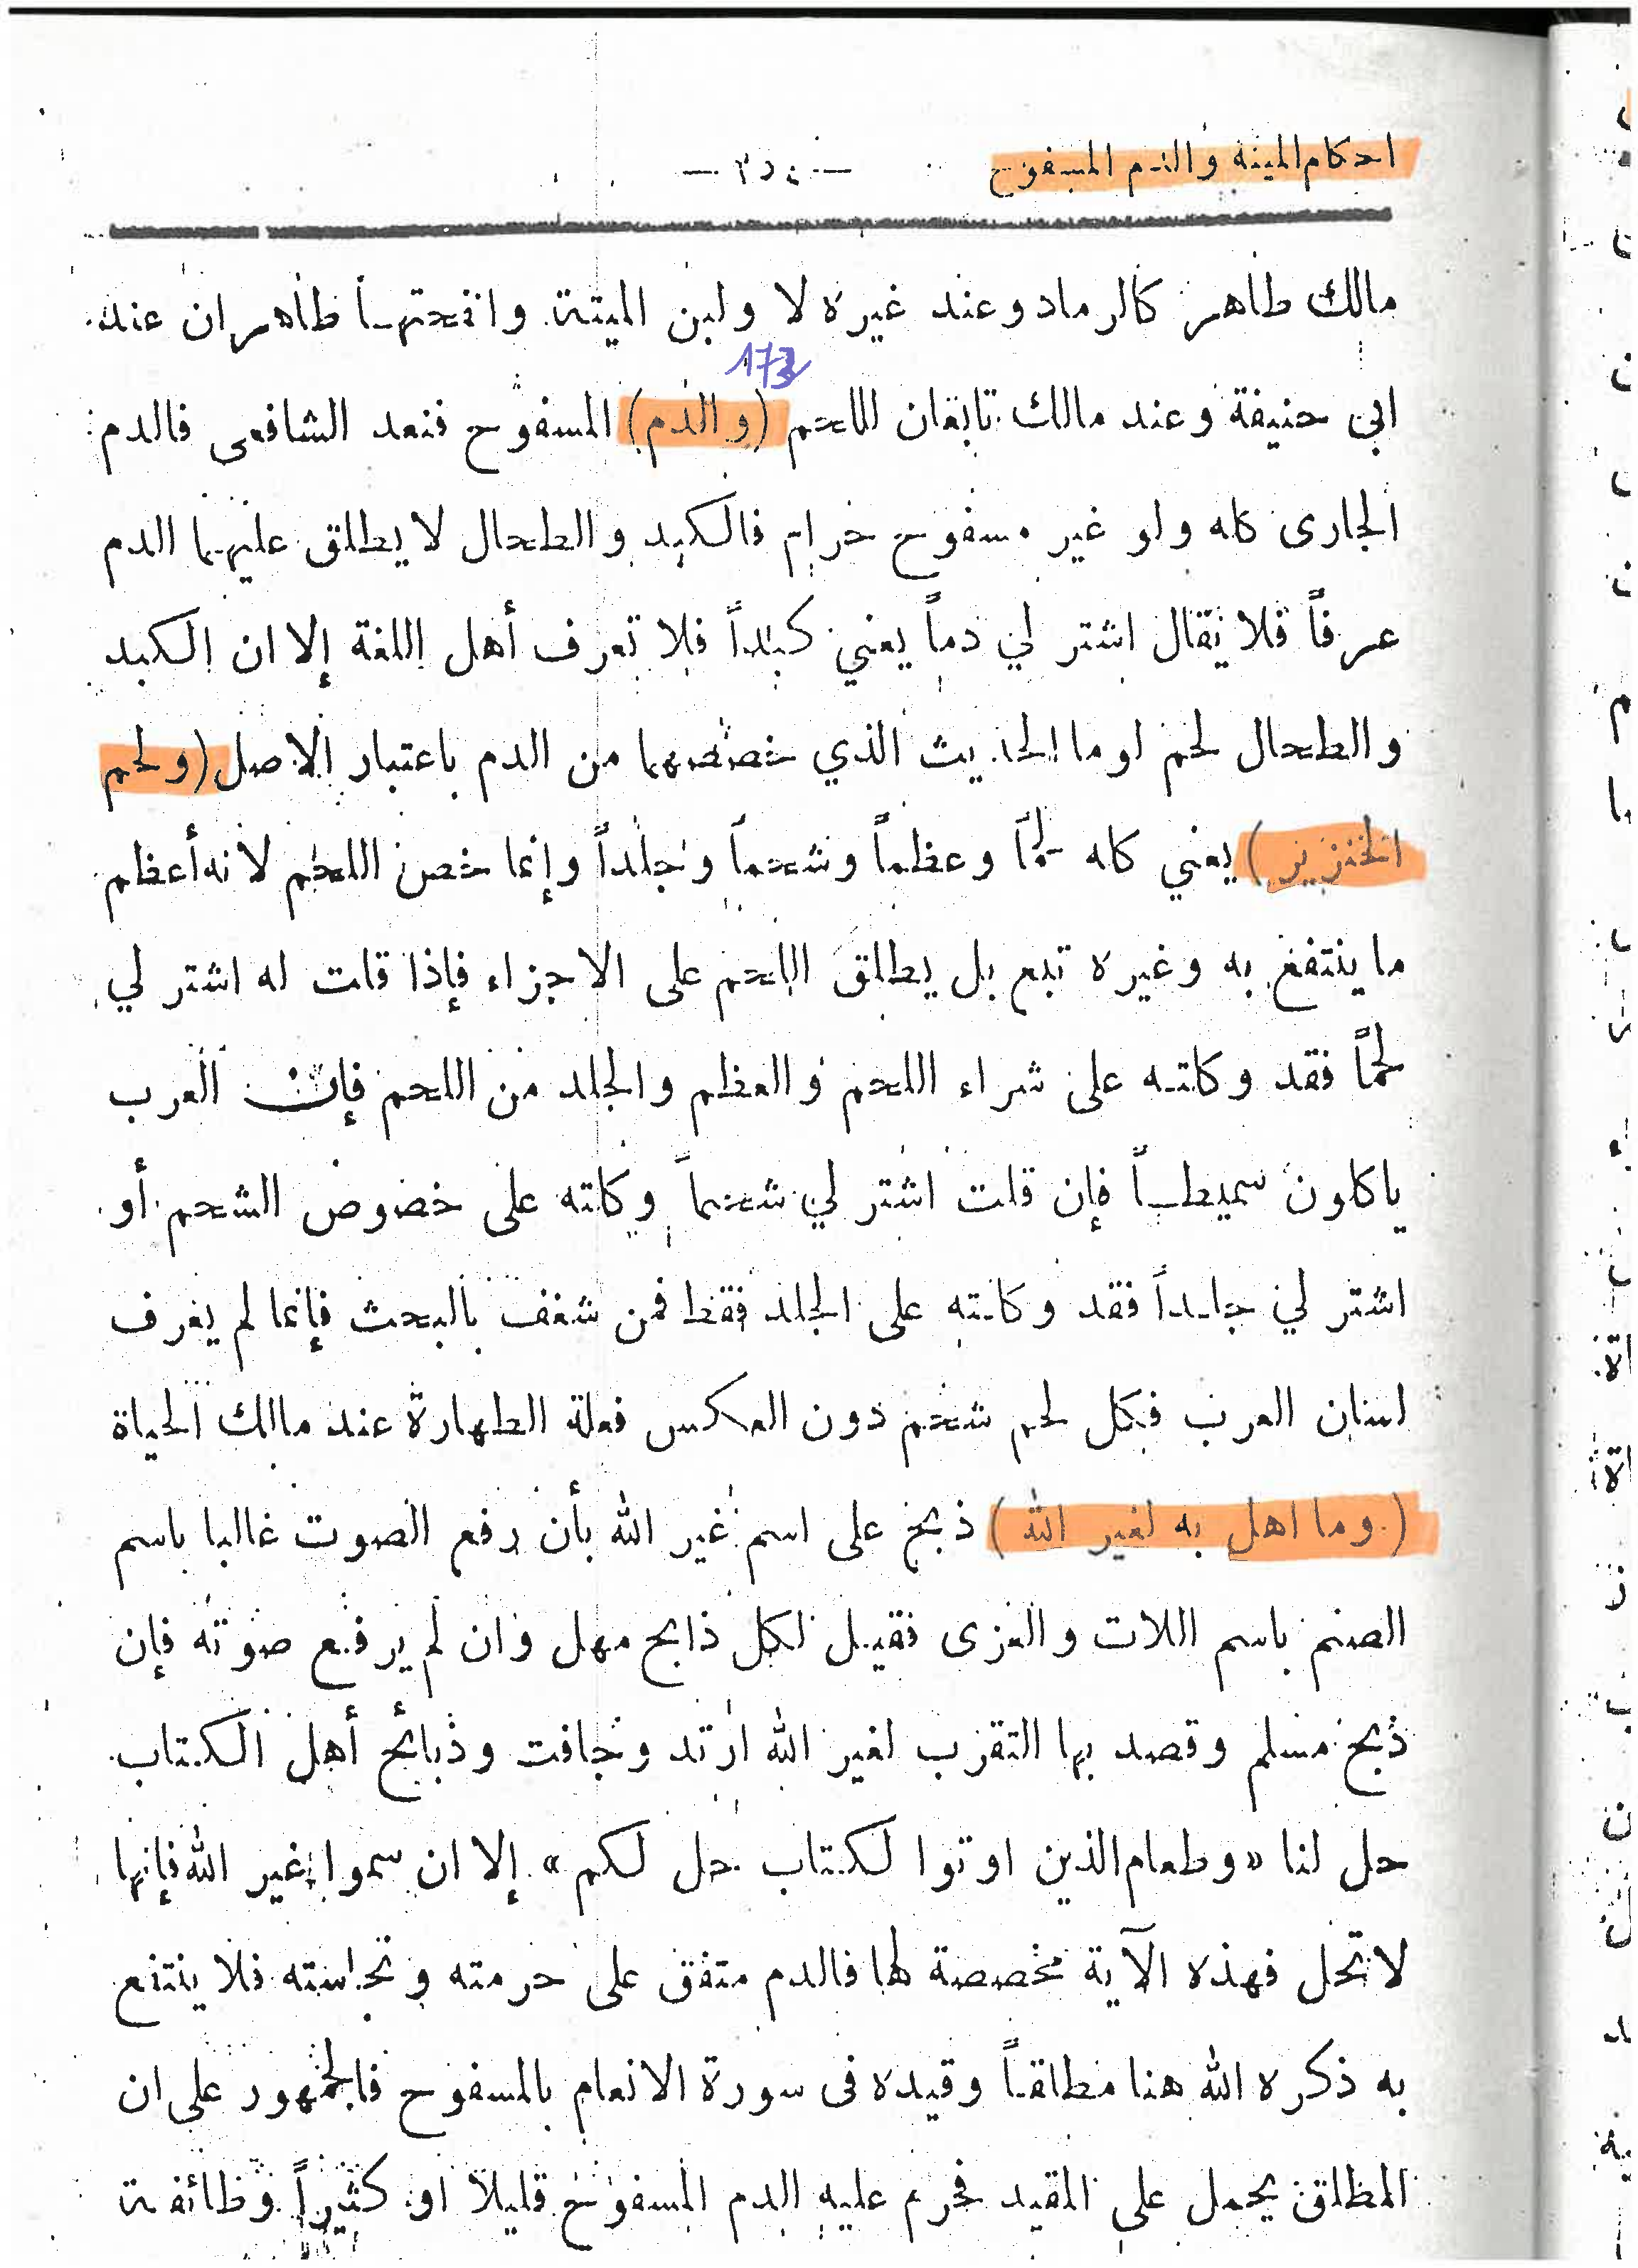 احكام الميتة والدم المسفوح
— ٢٥٤ —
مالك طاهر كالرماد وعند غيره لا ولبن الميتة وانفحتها طاهران عند
173
ابى حنيفة وعند مالك تابعان للحم (والدم) المسفوح فنعد الشافعى فالدم
الجارى كله ولو غير مسفوح حرام فالكبد والطحال لا يطلق عليهما الدم
عرفاً فلا يقال اشتر لي دماً يعني كبداً فلا تعرف أهل اللغة إلا ان الكبد
والطحال لحم لو ما الحديث الذي خصصهما من الدم باعتبار الاصل (ولحم
الخنزير) يعني كله لحماً وعظماً وشحماً وجلداً وإنما خص اللحم لانه أعظم
ما ينتفع به وغيره تبع بل يطلق اللحم على الاجزاء فإذا قلت له اشتر لي
لحماً فقد وكلته على شراء اللحم والعظم والجلد من اللحم فإن العرب
ياكلون سميطاً فإن قلت اشتر لي شحماً وكلته على خصوص الشحم أو
اشتر لي جلداً فقد وكلته على الجلد فقط فمن شغف بالبحث فإنما لم يعرف
لسان العرب فكل لحم شحم دون العكس فعلة الطهارة عند مالك الحياة
(وما اهل به لغير الله) ذبح على اسم غير الله بأن رفع الصوت غالبا باسم
الصنم باسم اللات والعزى فقيل لكل ذابح مهل وان لم يرفع صوته فإن
ذبح مسلم وقصد بها التقرب لغير الله ارتد وجافت وذبائح أهل الكتاب
حل لنا «وطعام الذين اوتوا لكتاب حل لكم» إلا ان سموا غير الله فإنها
لا تحل فهذه الآية مخصصة لها فالدم متفق على حرمته ونجاسته فلا ينتفع
به ذكره الله هنا مطلقاً وقيده فى سورة الانعام بالمسفوح فالجمهور على ان
المطلق يحمل على المقيد فحرم عليه الدم المسفوح قليلا او كثيراً وطائفة